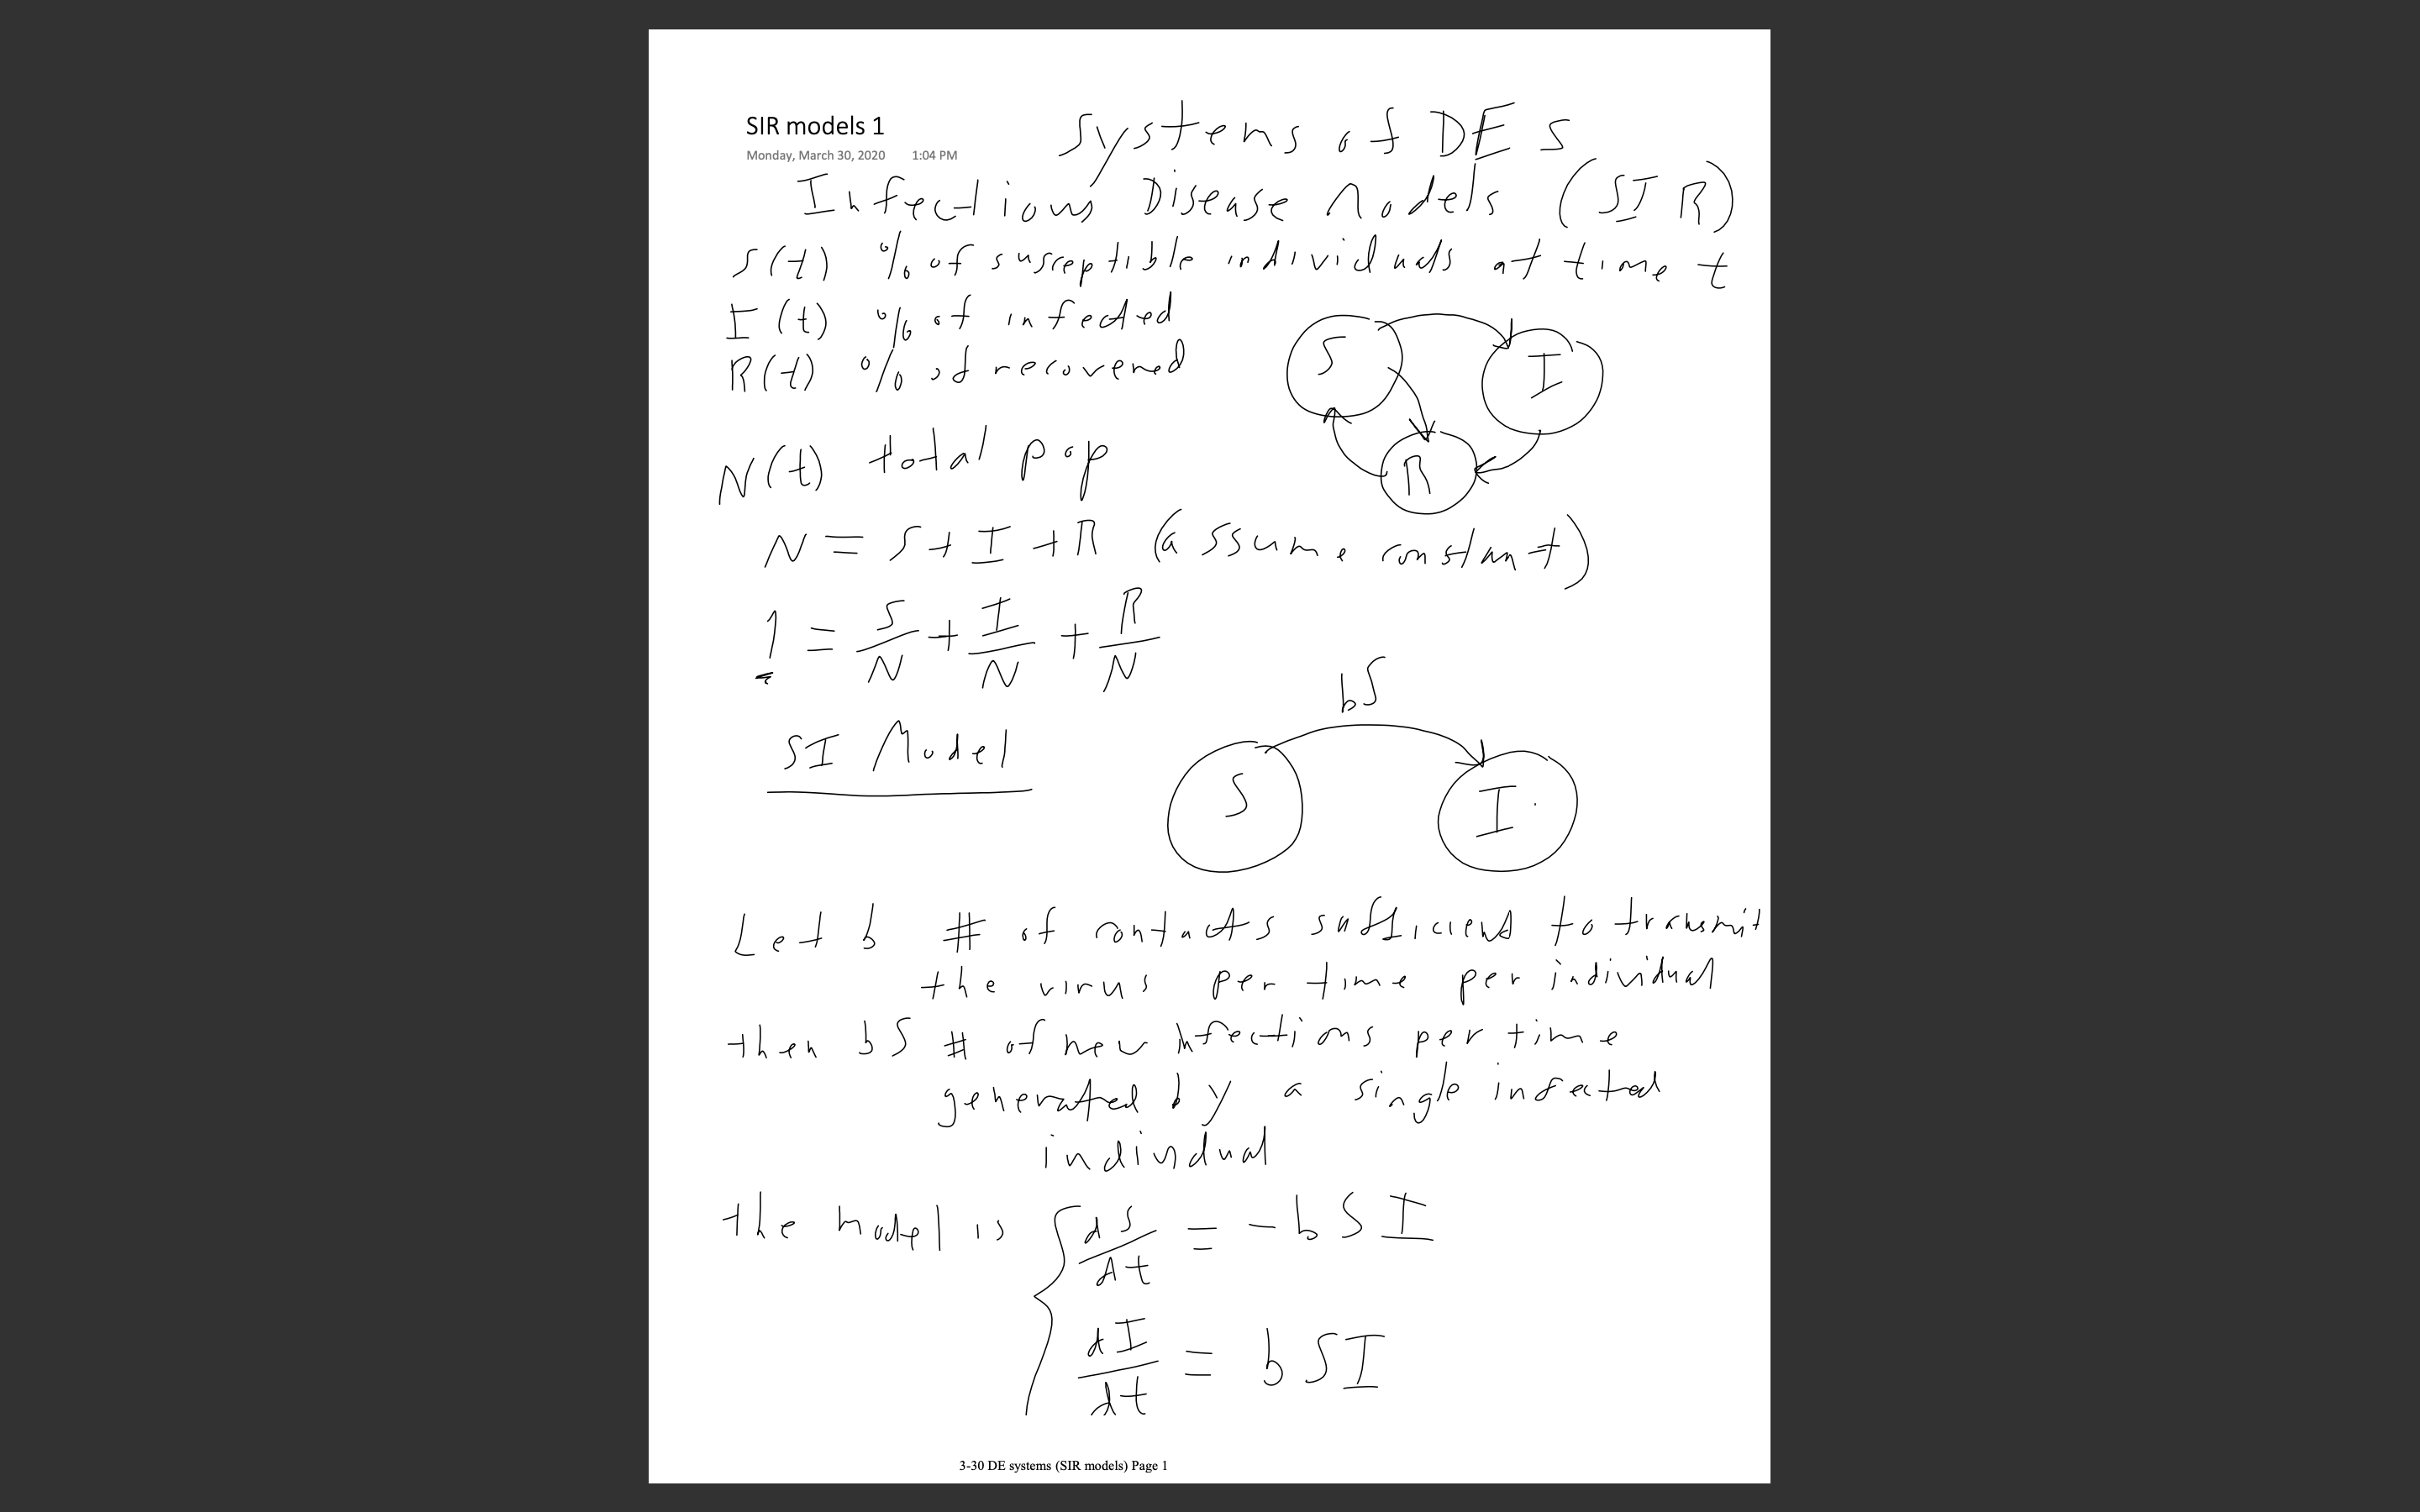 SIR models 1
Monday, March 30, 2020 1:04 PM
Systems of DEs
Infectious Disease Models (SIR)
S(t) % of susceptible individuals at time t
I(t) % of infected
R(t) % of recovered
S I
R
N(t) total pop
N = S + I + R (assume constant)
1 = S/N + I/N + R/N
bS
SI Model
S I
Let b # of contacts sufficient to transmit
the virus per time per individual
then bS # of new infections per time
generated by a single infected
individual
the model is dS/dt = -bSI
dI/dt = bSI
3-30 DE systems (SIR models) Page 1